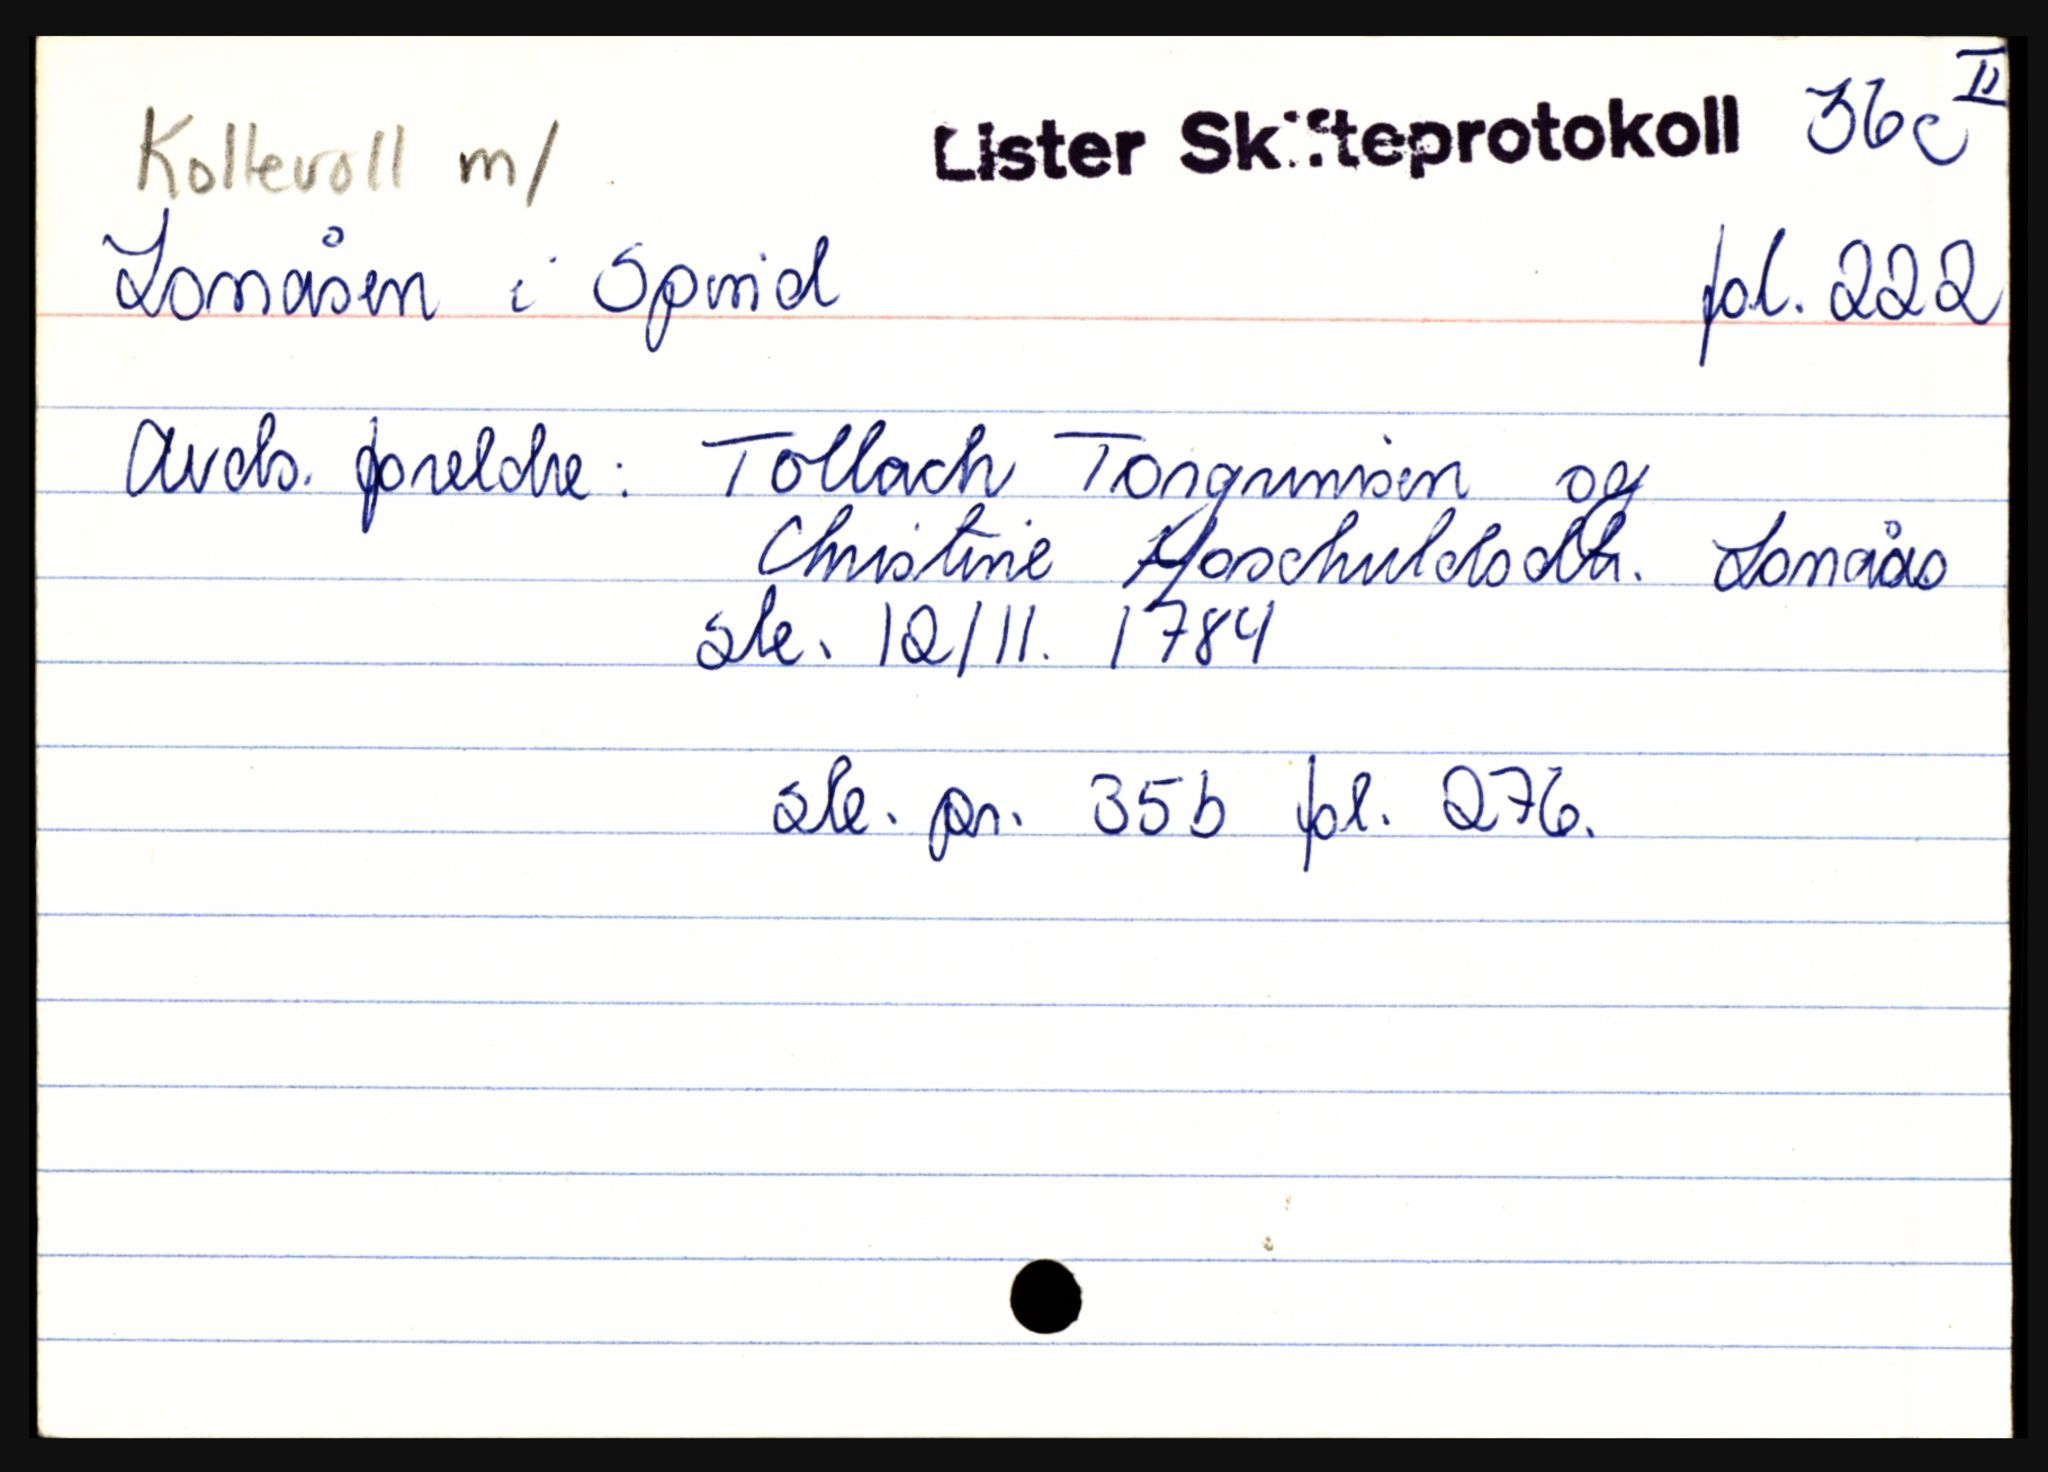 Kollevoll m/ Lister Skifteprotokoll 36c II
Lonåsen i Spind fol. 222
Avds. foreldre: Tollach Torgrimsen og
Christine Hoschuldsdtr. Lonåas
ske. 12/11. 1784
ske. pr. 35b fol. 276.